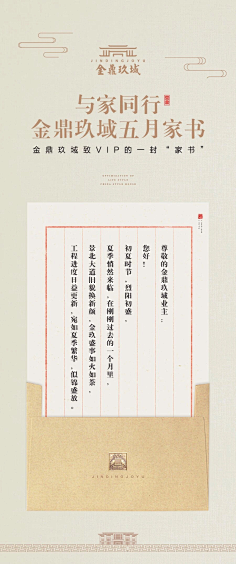 JINDINGJUYU
金鼎玖域
与家同行
金鼎玖域五月家书
金鼎玖域致VIP的一封“家书”
尊敬的金鼎玖域业主：
您好！
初夏时节，烈阳初盛，
夏季悄然来临，在刚刚过去的一个月里，
景北大道旧貌换新颜，金玖盛事如火如荼，
工程进度日益更新，宛如夏季繁华，似锦盛放。
JINDINGJUYU